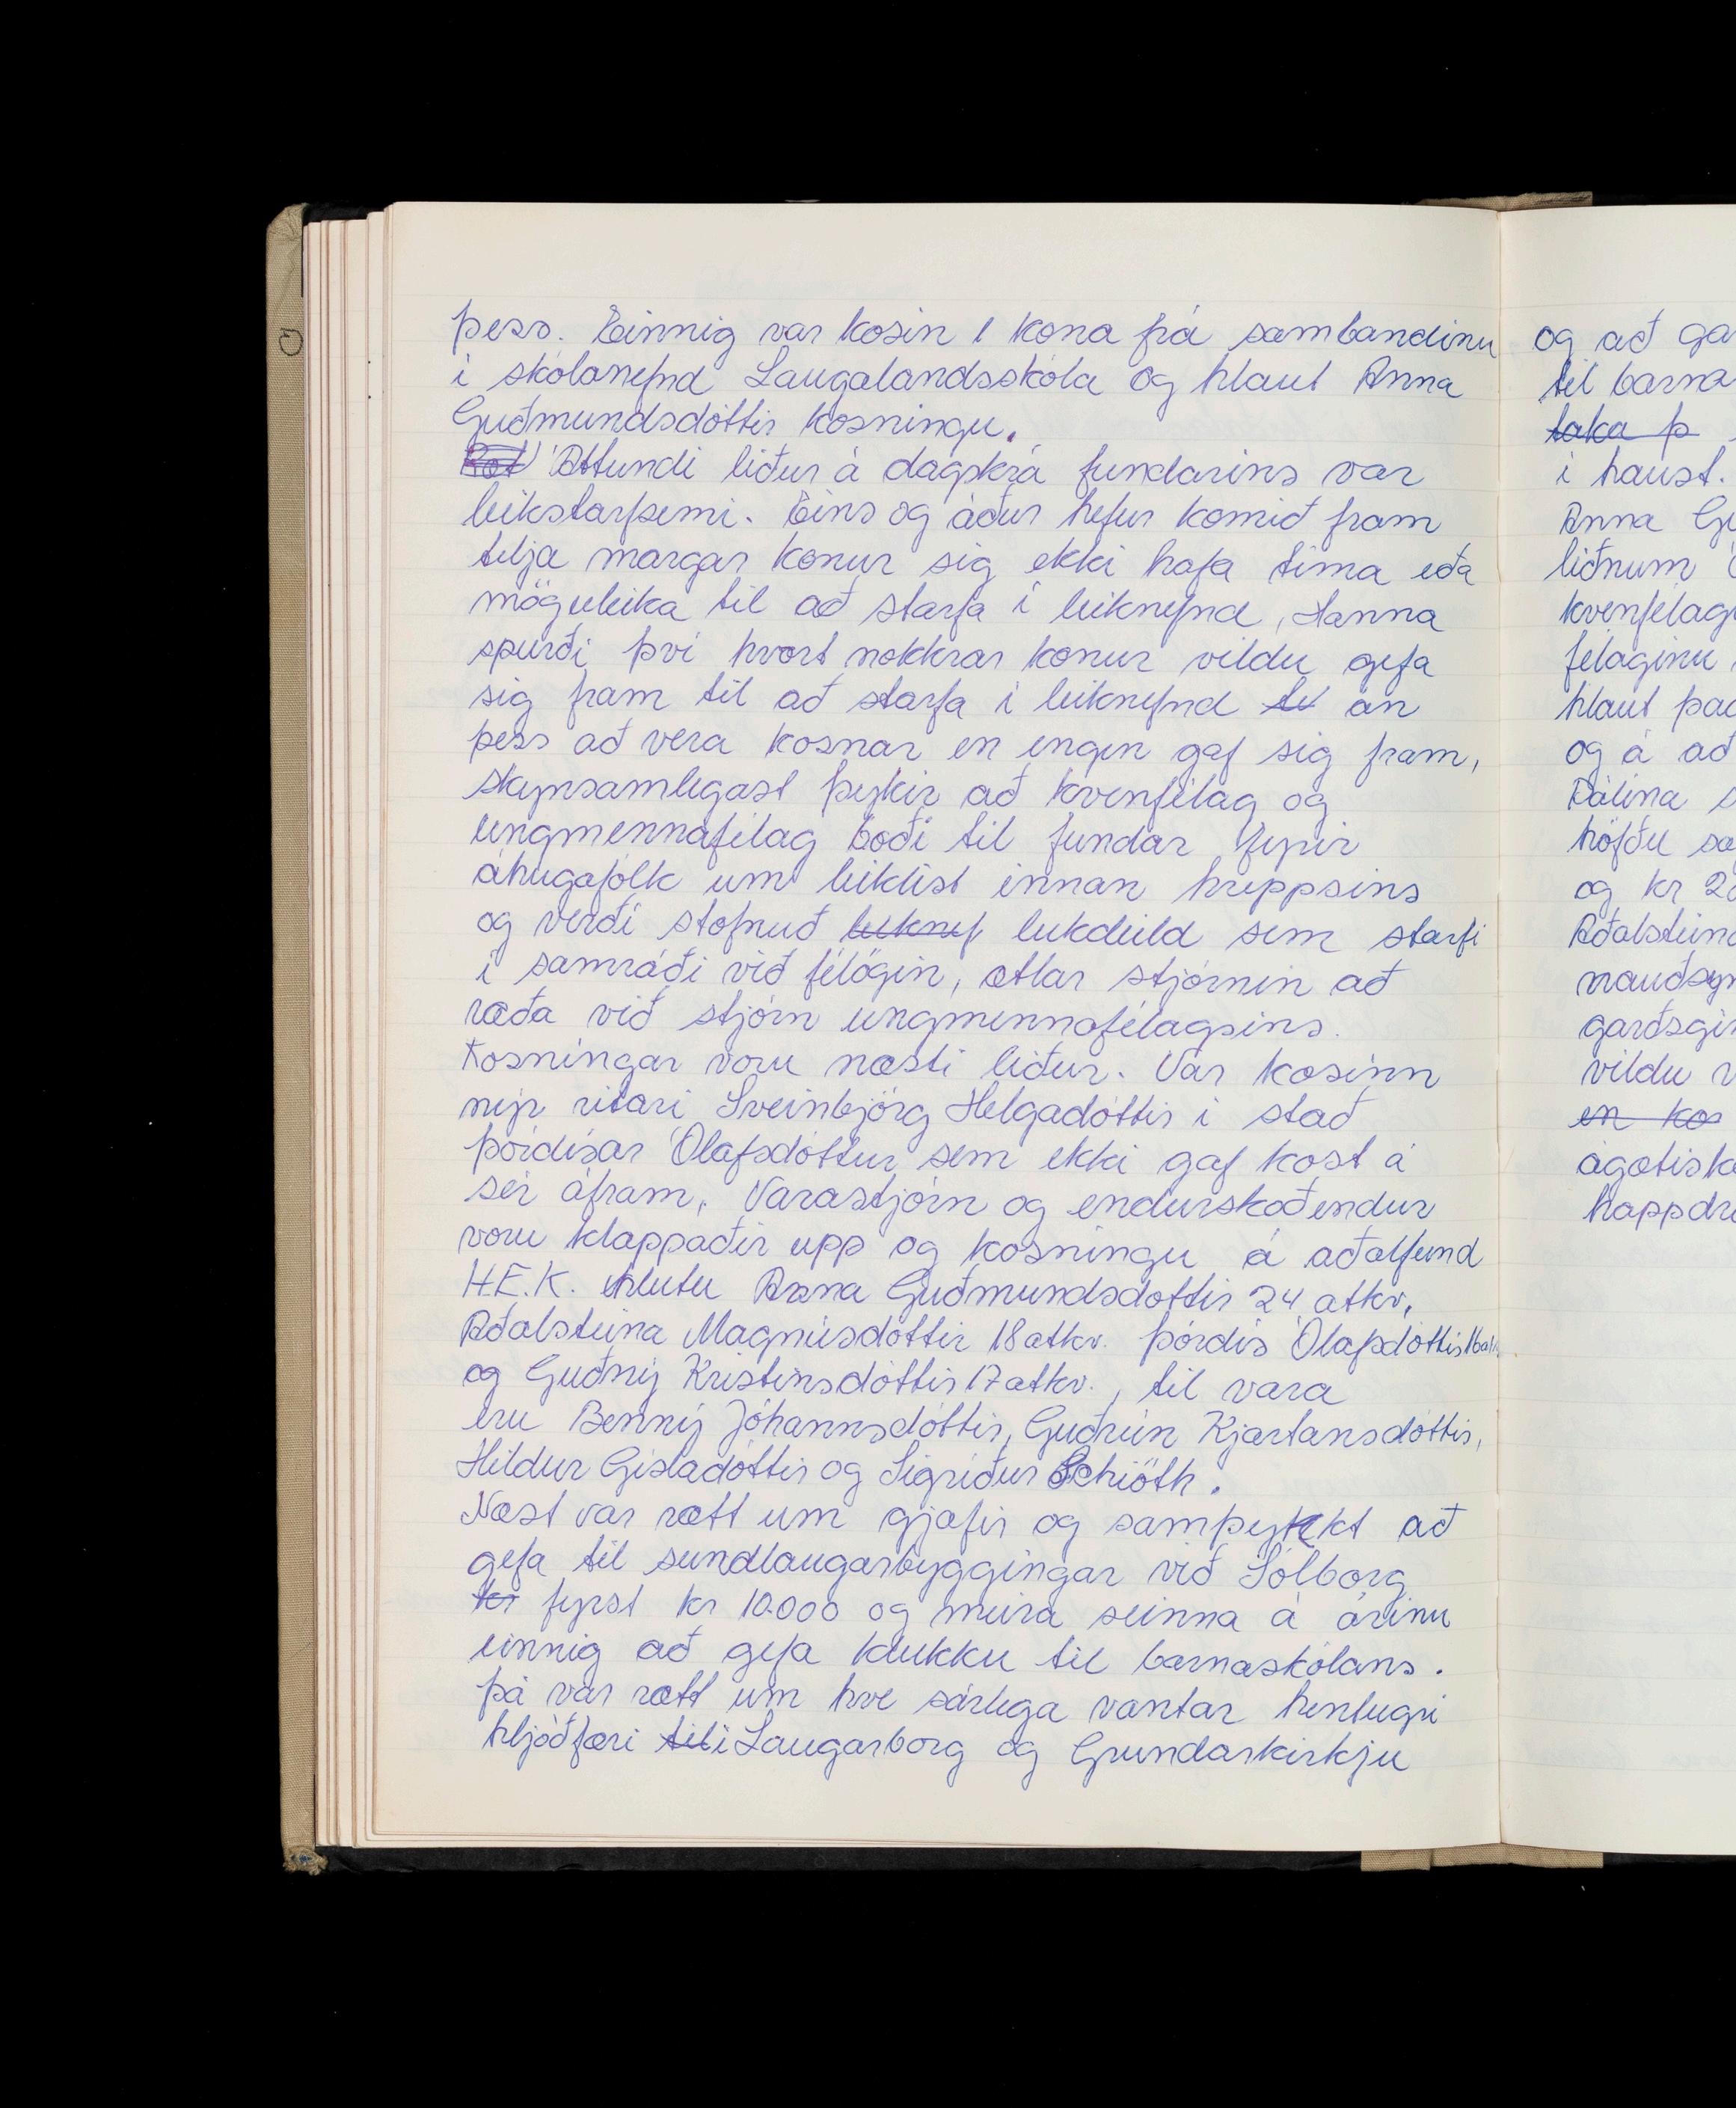 þess. Einnig var kosin 1 kona frá sambandinu
í skólanefnd Laugalandsskóla og hlaut Anna
Guðmundsdóttir kosningu.
Áttundi liður á dagskrá fundarins var
leikstarfsemi. Eins og áður hefur komið fram
telja margar konur sig ekki hafa tíma eða
möguleika til að starfa í leiknefnd, Hanna
spurði því hvort nokkrar konur vildu gefa
sig fram til að starfa í leiknefnd án
þess að vera kosnar en engin gaf sig fram,
skynsamlegast þykir að kvenfélag og
ungmennafélag boði til fundar fyrir
áhugafólk um leiklist innan hreppsins
og verði stofnuð leiknef leikdeild sem starfi
í samráði við félögin, ætlar stjórnin að
ræða við stjórn ungmennafélagsins.
Kosningar voru næsti liður. Var kosinn
nýr ritari Sveinbjörg Helgadóttir í stað
Þórdísar Ólafsdóttur sem ekki gaf kost á
sér áfram. Varastjórn og endurskoðendur
voru klappaðir upp og kosningu á aðalfund
H.E.K. hlutu Anna Guðmundsdottir 24 atkv,
Aðalsteina Magnúsdóttir 18 atkv. Þórdís Ólafsdóttir 16 atkv
og Guðný Kristinsdóttir 17 atkv., til vara
eru Benný Jóhannsdóttir, Guðrún Kjartansdóttir,
Hildur Gísladóttir og Sigríður Schiöth.
Næst var rætt um gjafir og samþykkt að
gefa til sundlaugarbyggingar við Sólborg
kr fyrst kr 10.000 og meira seinna á árinu
einnig að gefa klukku til barnaskólans.
Þá var rætt um hve sárlega vantar henlugri
hljóðfæri til í Laugarborg og Grundarkirkju
og að ga
til barna
taka þ
í haust.
Anna Gu
liðnum
kvenfélag
félaginu
hlaut það
og á að
Pálína s
höfðu sa
og kr 2
Aðalstein
nauðsyn
garðsgir
vildu v
en kos
ágætisk
happdr